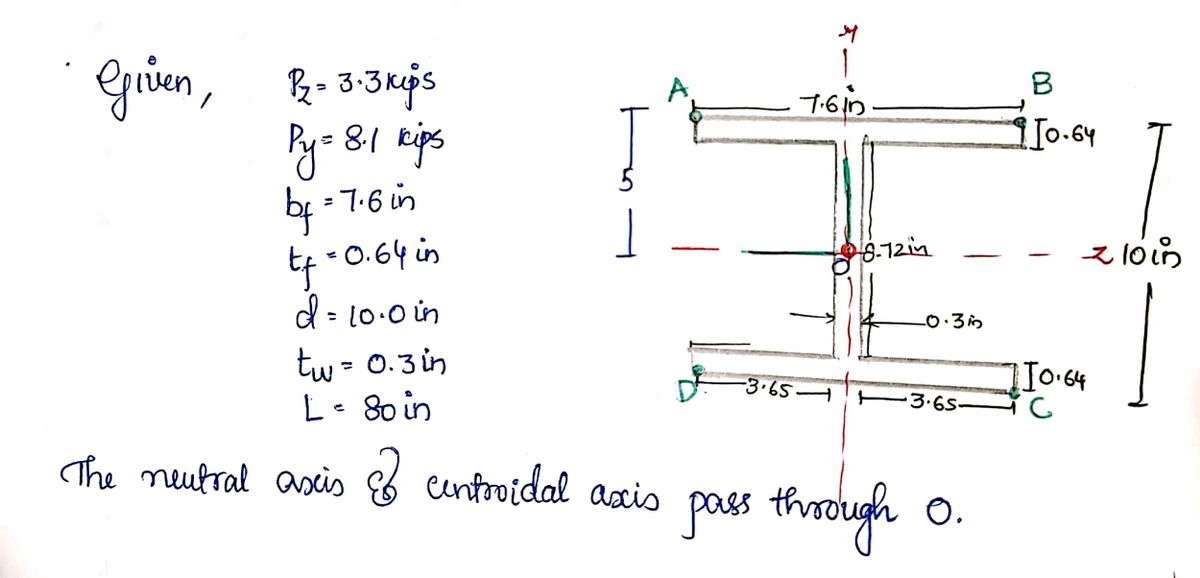 Given,
Pz = 3.3 kips
Py = 8.1 kips
bf = 7.6 in
tf = 0.64 in
d = 10.0 in
tw = 0.3 in
L = 80 in
y
A
B
7.6 in
0.64
5
O
8.72 in
z
10 in
0.3 in
0.64
D
3.65
3.65
C
The neutral axis & centroidal axis pass through O.